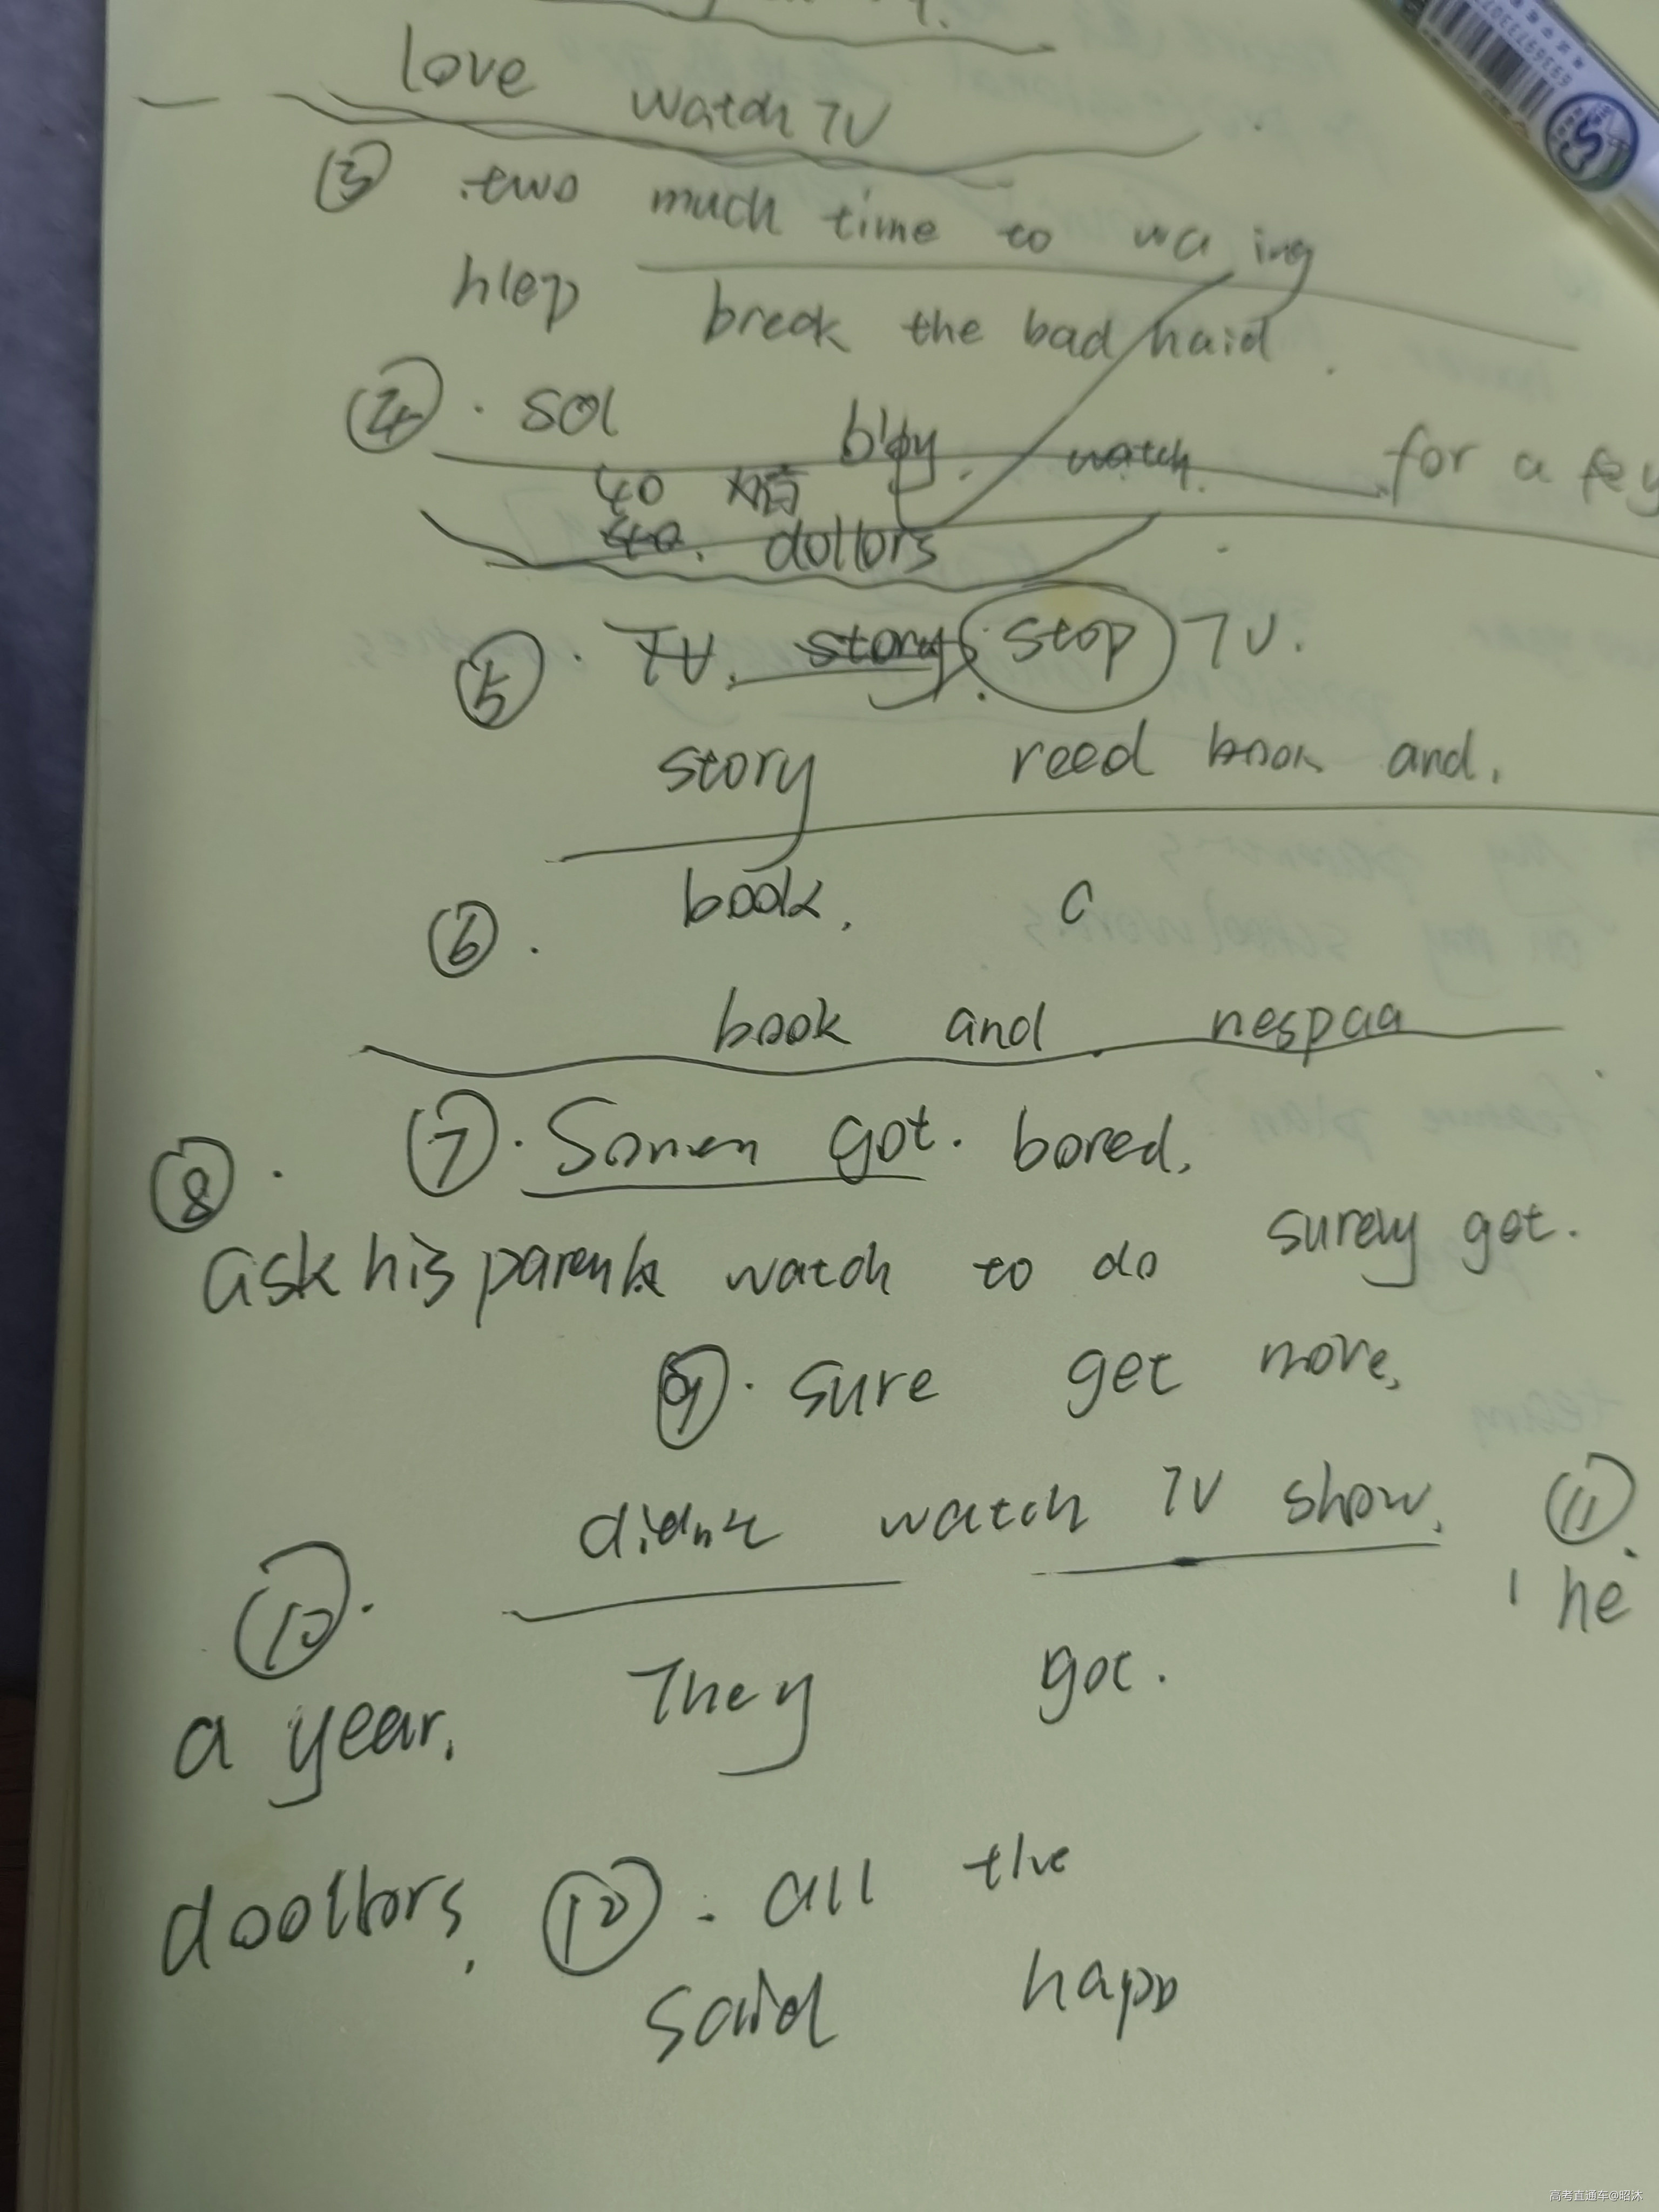 love watch TV
③ .two much time to wa ing
hlep break the bad haid.
④. sol
bipy. watch. for a fey
40 
dollors
⑤. TV. story stop TV.
story reed book and.
⑥. book. a
book and nespaa
⑦. Somen got. bored.
⑧.
ask his parents watch to do surely got.
⑨. sure get more.
didnt watch TV show.
⑩. ⑪.
he
a year. They got.
doollors. ⑫. all the
said happ
6939697330
高考直通车@昭沐